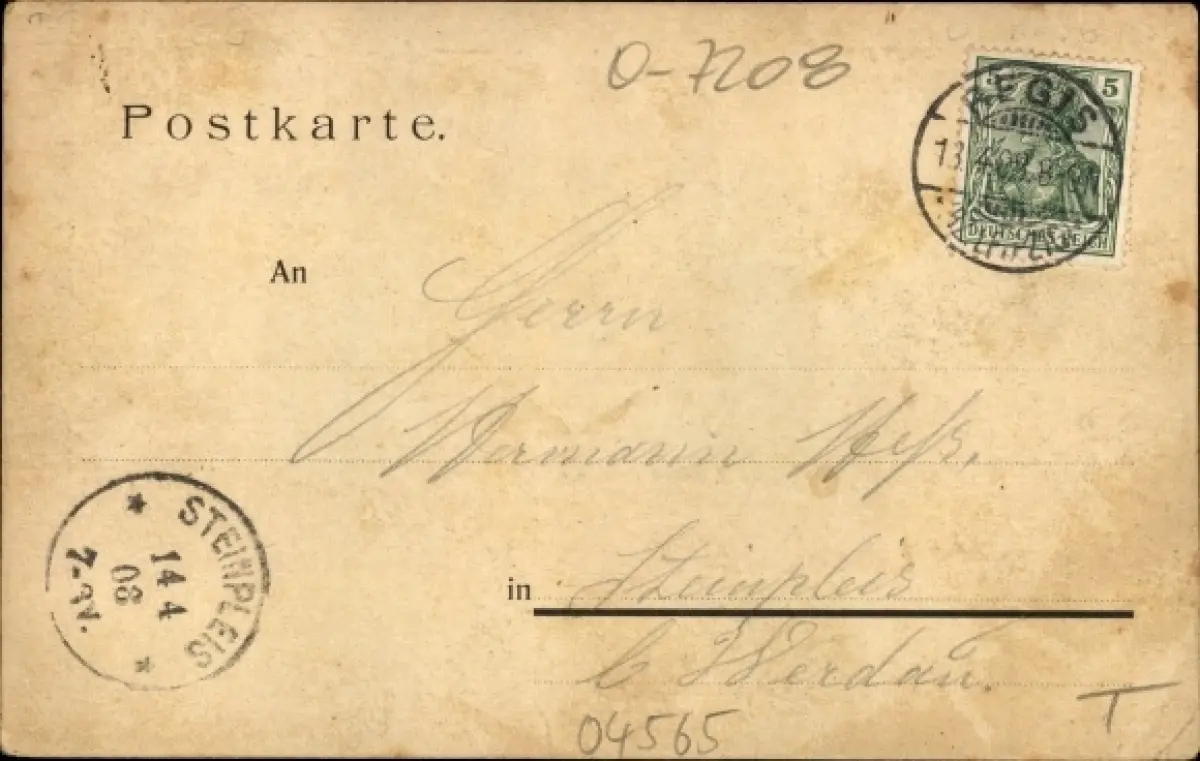 O-7208
Postkarte.
5
REGIS
13.4.08.8-9N
DEUTSCHES REICH
An
Herrn
Hermann
in
Steinpleis
b Werdau.
STEINPLEIS
14 4
08
7-8V.
04565
T